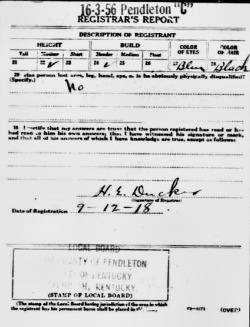 16-3-56 Pendleton "C"
REGISTRAR'S REPORT
DESCRIPTION OF REGISTRANT
HEIGHT BUILD COLOR OF EYES COLOR OF HAIR
Tall Medium Short Slender Medium Stout
21 22 ✓ 23 24 ✓ 25 26 27 Blue 28 Black
29 Has person lost arm, leg, hand, eye, or is he obviously physically disqualified?
(Specify.)
No
30 I certify that my answers are true; that the person registered has read or has
had read to him his own answers; that I have witnessed his signature or mark,
and that all of his answers of which I have knowledge are true, except as follows:
H. E.
(Signature of Registrar)
Date of Registration 9-12-18
LOCAL BOARD
COUNTY OF PENDLETON
STATE OF KENTUCKY
KENTUCKY.
(STAMP OF LOCAL BOARD)
(The stamp of the Local Board having jurisdiction of the area in which
the registrant has his permanent home shall be placed in this box.)
(OVER)